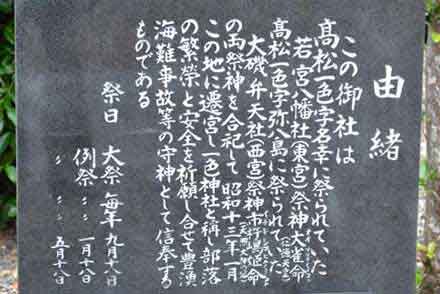 由緒
この御社は
高松一色字名幸に祭られていた
若宮八幡社(東宮)祭神大雀命
高松一色字弥八島に祭られてゐた
大磯弁天社(西宮)祭神市杵島姫命
の両祭神を合祀して昭和十三年一月
この地に遷宮し一色神社と称し部落
の繁栄と安全を祈願し合せて豊漁
海難事故等の守神として信奉する
ものである
祭日 大祭 毎年九月十八日
例祭 〃 一月十八日
〃 〃 五月十八日